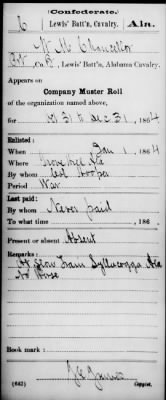 (Confederate.)
6 Lewis' Batt'n, Cavalry. Ala.
W M Chancellor
Pvt, Co , Lewis' Batt'n, Alabama Cavalry.
Appears on
Company Muster Roll
of the organization named above,
for Oct 31 to Dec 31, 1864
Enlisted:
When Jan 1, 1864
Where Grove Hill Ala
By whom Capt
Period War
Last paid:
By whom Never paid
To what time , 186
Present or absent Absent
Remarks:
At from Ala
No Horse
Book mark:
(642) Copyist.